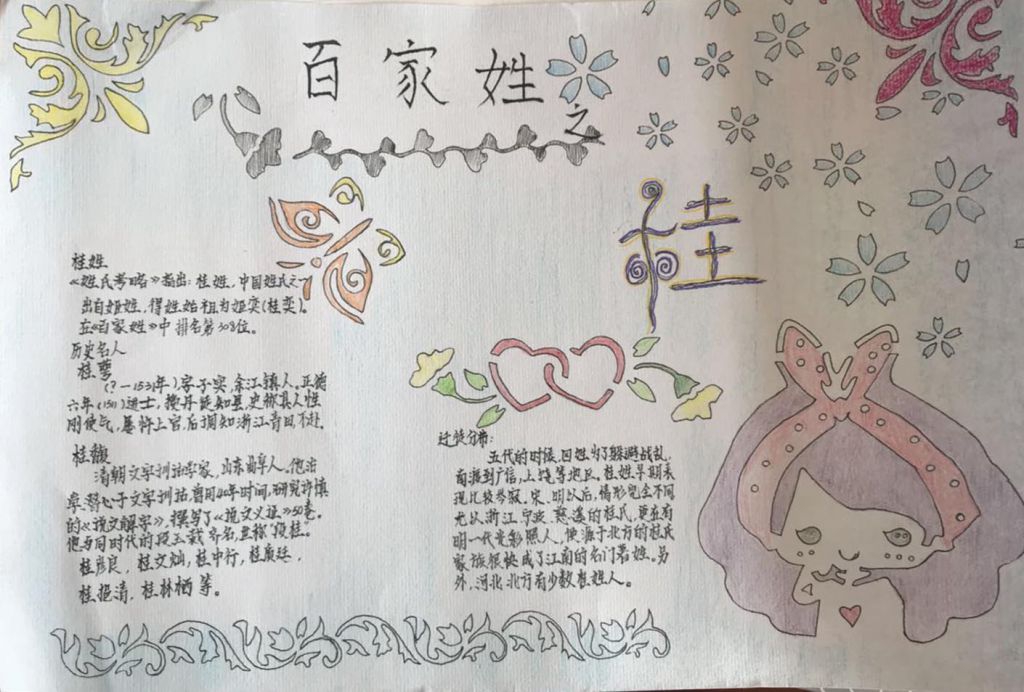 百家姓之
桂
桂姓
《姓氏考略》指出:桂姓,中国姓氏之一
出自姬姓,得姓始祖为姬奕(桂奕)。
在《百家姓》中排名第308位。
历史名人
桂萼
(?—1531年)字子实,余江镇人。正德
六年(1511)进士,授丹徒知县,史称其人性
刚使气,屡忤上官,后调知浙江青田不赴。
桂馥
清朝文字训诂学家,山东曲阜人。他治
学潜心于文字训诂,曾用40年时间,研究许慎
的《说文解字》,撰写了《说文义证》50卷。
他与同时代的段玉裁齐名,并称"段桂"。
桂彦良,桂文灿,桂中行,桂质廷,
桂挹清,桂林栖等。
迁徙分布:
五代的时候,因姓为了躲避战乱,
南搬到广信,上饶等地民。桂姓早期表
现比较荣寂。宋、明以后,情形完全不同
尤以浙江宁波、慈溪的桂氏,更在有
明一代光彩照人,使源于北方的桂氏
家族很快成了江南的名门著姓。另
外,河北北方有少数桂姓人。